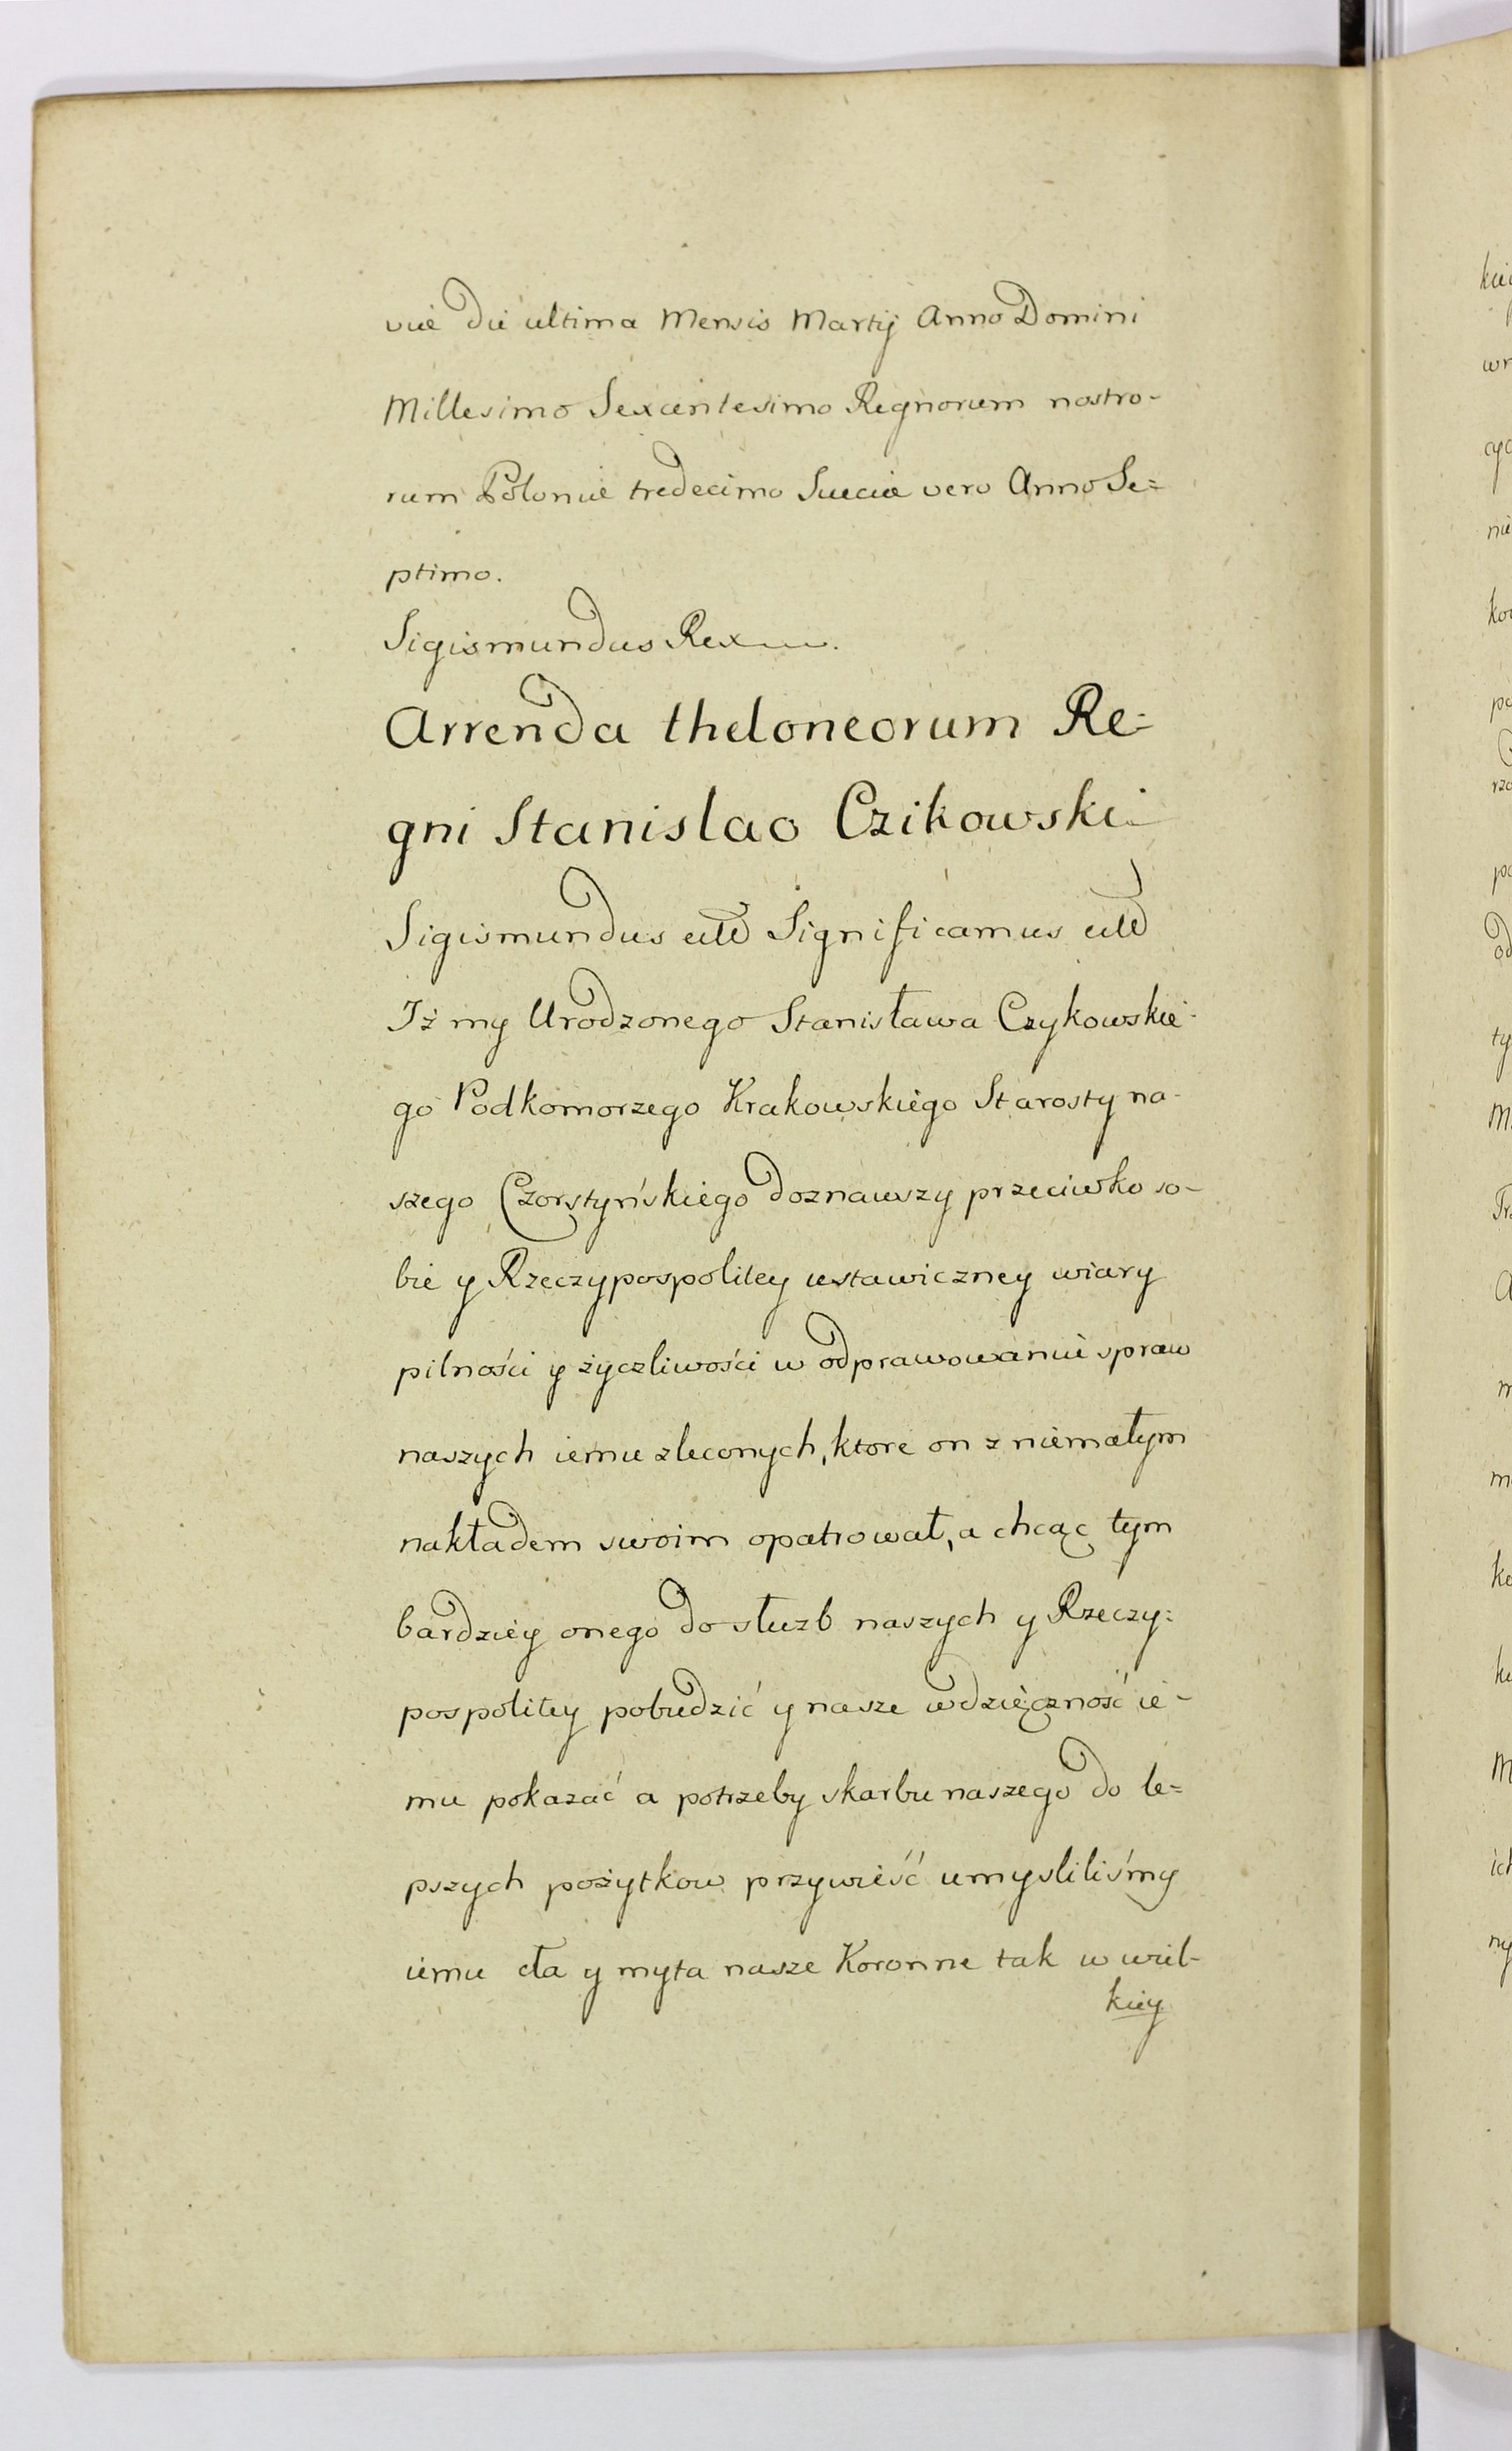 vie die ultima Mensis Martij Anno Domini
Millesimo Sexcentesimo Regnorum nostro-
rum Polonie tredecimo Suecie vero Anno Se=
ptimo.
Sigismundus Rex
Arrenda theloneorum Re=
gni Stanislao Czikowski
Sigismundus Significamus
Iż my Urodzonego Stanisława Czykowskie-
go Podkomorzego Krakowskiego Starosty na-
szego Czorstyńskiego doznawszy przeciwko so-
bie y Rzeczypospolitey ustawiczney wiary
pilności y życzliwości w odprawowaniu spraw
naszych iemu zleconych, ktore on z niemałym
nakładem swoim opatrował, a chcąc tym
bardziey onego do służb naszych y Rzeczy=
pospolitey pobudzić y nasze wdzięczność ie-
mu pokazać a potrzeby skarbu naszego do le=
pszych pożytkow przywieść umysliliśmy
iemu cła y myta nasze Koronne tak w wiel-
kiey